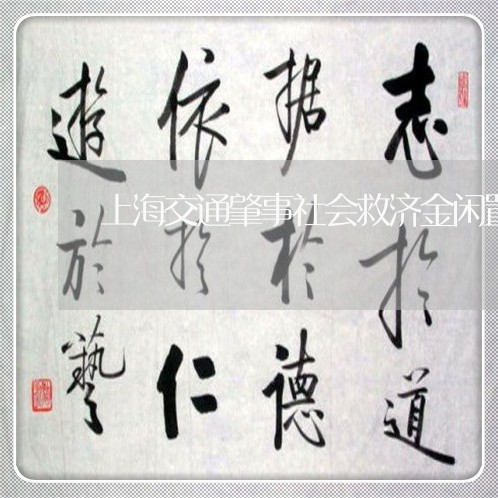 志於道
据於德
依於仁
遊於藝
上海交通肇事社会救济金闲